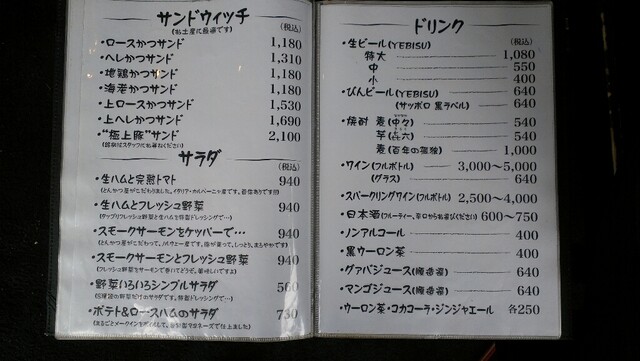 サンドウィッチ
(お土産に最適です)
(税込)
・ロースかつサンド 1,180
・ヘレかつサンド 1,310
・地鶏かつサンド 1,180
・海老かつサンド 1,180
・上ロースかつサンド 1,530
・上ヘレかつサンド 1,690
・“極上豚”サンド 2,100
(銘柄はスタッフにお尋ねください)
サラダ
(税込)
・生ハムと完熟トマト 940
(とんかつ屋がこだわりました。イタリア・カルパーニャ産です。
・生ハムとフレッシュ野菜 940
(タップリフレッシュ野菜と生ハムを特製ドレッシングで…)
・スモークサーモンをケッパーで… 940
(とんかつ屋がこだわって、ノルウェー産です。脂が乗って、しっとり、まろやかです)
・スモークサーモンとフレッシュ野菜 940
(フレッシュ野菜をサーモンで巻いてどうぞ。美味しいですよ)
・野菜いろいろシンプルサラダ 560
野菜だけのサラダです。特製ドレッシングで…)
・ポテト&ロースハムのサラダ 730
(まるごとメークインを マヨネーズで仕上ました)
ドリンク
・生ビール(YEBISU) (税込)
特大 1,080
中 550
小 400
・びんビール(YEBISU) 640
(サッポロ 黒ラベル) 640
・焼酎 麦(中々) 540
芋(㐂六) 540
麦(百年の孤独) 1,000
・ワイン(フルボトル) 3,000〜5,000
(グラス) 640
・スパークリングワイン(フルボトル) 2,500〜4,000
・日本酒(フルーティー、辛口からお選びください) 600〜750
・ノンアルコール 400
・黒ウーロン茶 400
・グァバジュース(糖造寮) 640
・マンゴジュース(糖造寮) 640
・ウーロン茶・コカコーラ・ジンジャエール 各250